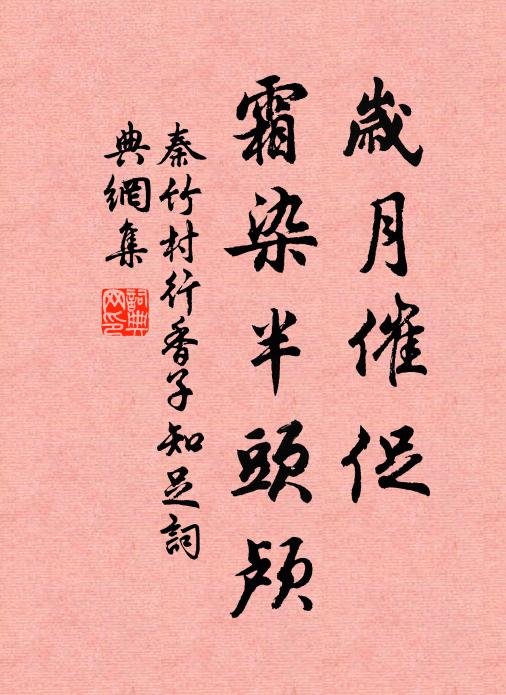 歲月催促
霜染半頭颅
秦竹村行香子知足詞
典網集
詞典网印